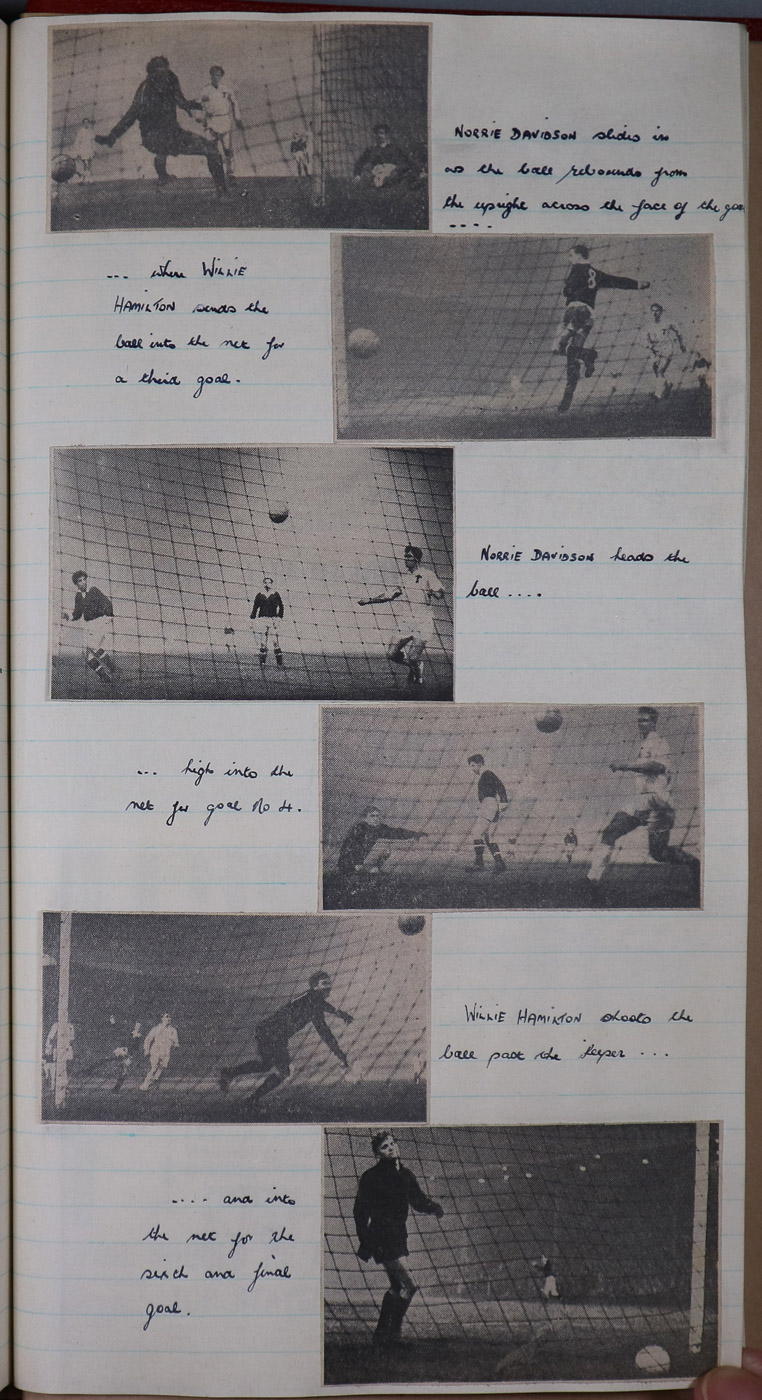 NORRIE DAVIDSON slides in
as the ball rebounds from
the upright across the face of the goal
....
... where WILLIE
HAMILTON sends the
ball into the net for
a third goal.
8
NORRIE DAVIDSON heads the
ball ....
... high into the
net for goal No 4.
WILLIE HAMILTON shoots the
ball past the keeper ...
.... and into
the net for the
sixth and final
goal.